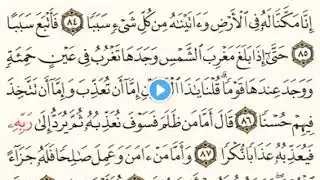 إِنَّا مَكَّنَّا لَهُۥ فِى ٱلْأَرْضِ وَءَاتَيْنَٰهُ مِن كُلِّ شَىْءٍ سَبَبًا ٨٤ فَأَتْبَعَ سَبَبًا
٨٥ حَتَّىٰٓ إِذَا بَلَغَ مَغْرِبَ ٱلشَّمْسِ وَجَدَهَا تَغْرُبُ فِى عَيْنٍ حَمِئَةٍ
وَوَجَدَ عِندَهَا قَوْمًا قُلْنَا يَٰذَا إِمَّآ أَن تُعَذِّبَ وَإِمَّآ أَن تَتَّخِذَ
فِيهِمْ حُسْنًا ٨٦ قَالَ أَمَّا مَن ظَلَمَ فَسَوْفَ نُعَذِّبُهُۥ ثُمَّ يُرَدُّ إِلَىٰ رَبِّهِۦ
فَيُعَذِّبُهُۥ عَذَابًا نُّكْرًا ٨٧ وَأَمَّا مَنْ ءَامَنَ وَعَمِلَ صَٰلِحًا فَلَهُۥ جَزَآءً